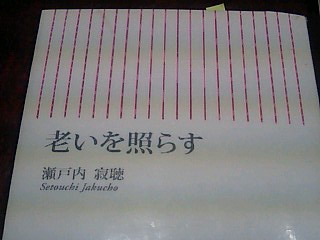 老いを照らす
瀬戸内 寂聴
Setouchi Jakucho